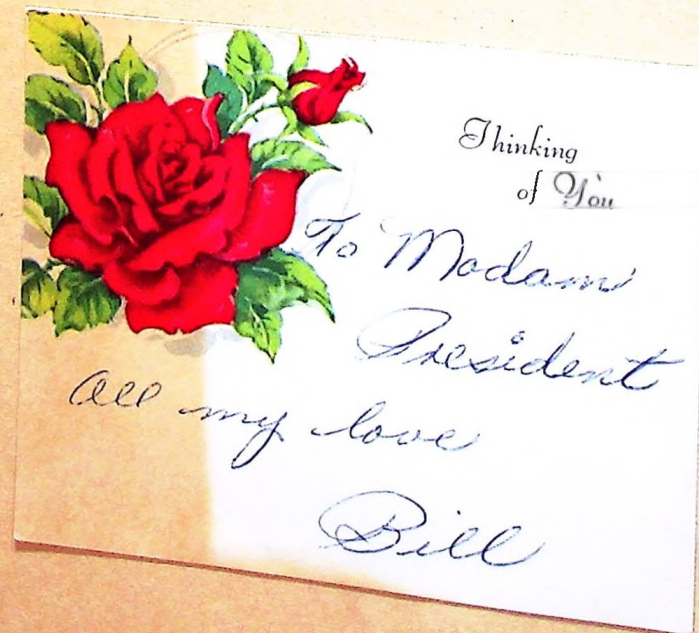 Thinking
of You
To Madam
President
All my love
Bill